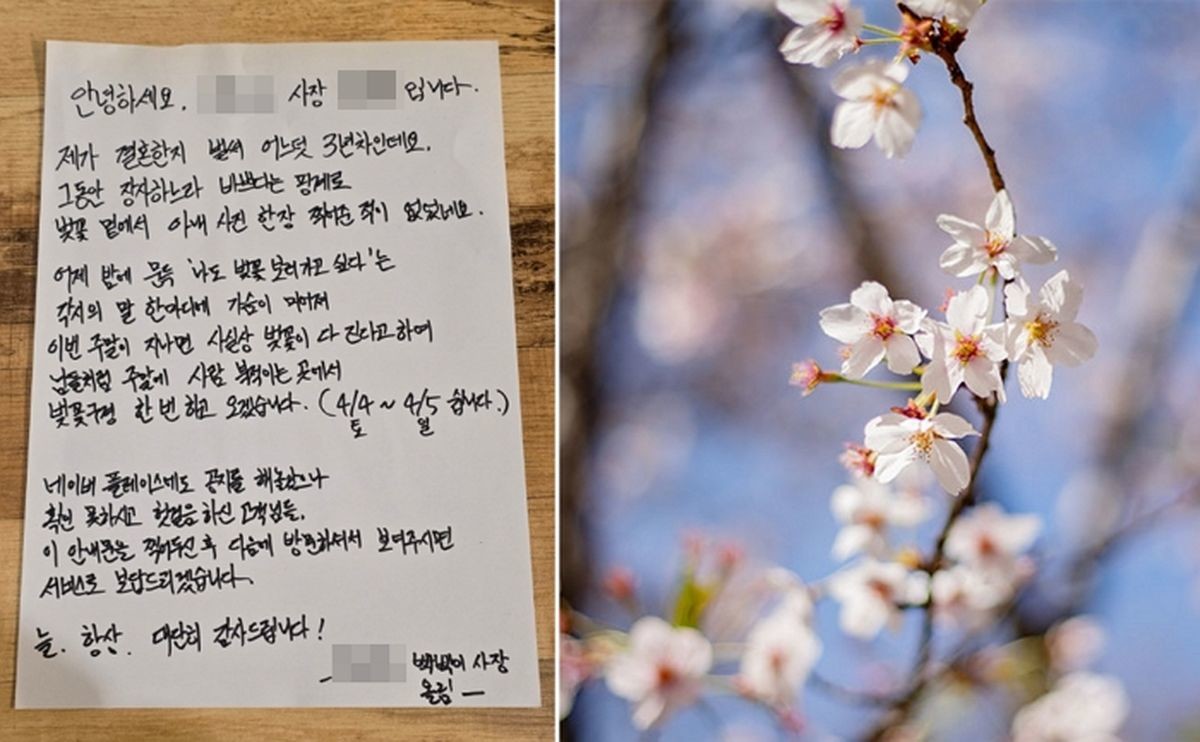 안녕하세요. 사장 입니다.
제가 결혼한지 벌써 어느덧 3년차인데요.
그동안 장사하느라 바쁘다는 핑계로
벚꽃 밑에서 아내 사진 한장 찍어준 적이 없었네요.
어제 밤에 문득 '나도 벚꽃 보러가고 싶다'는
각시의 말 한마디에 가슴이 미어져
이번 주말이 지나면 사실상 벚꽃이 다 진다고 하여
남들처럼 주말에 사람 북적이는 곳에서
벚꽃구경 한 번 하고 오겠습니다. (4/4 ~ 4/5 쉽니다.)
토 일
네이버 플레이스에도 공지를 해놓았으나
확인 못하시고 헛걸음 하신 고객님들,
이 안내문을 찍어두신 후 다음에 방문하셔서 보여주시면
서비스로 보답드리겠습니다.
늘, 항상, 대단히 감사드립니다!
사장
올림